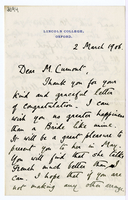 LINCOLN COLLEGE,
OXFORD.
2 March 1906.
Dear M Cumont,
Thank you for your
kind and graceful letter
of congratulation. I can
wish you no greater happiness
than a Bride like mine.
It will be a great pleasure to
present you to her in May.
You will find that she talks
French much better than I
I hope that if you are
not making any other